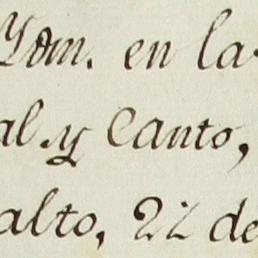 Yom. en la
al y Canto,
alto, 22 de